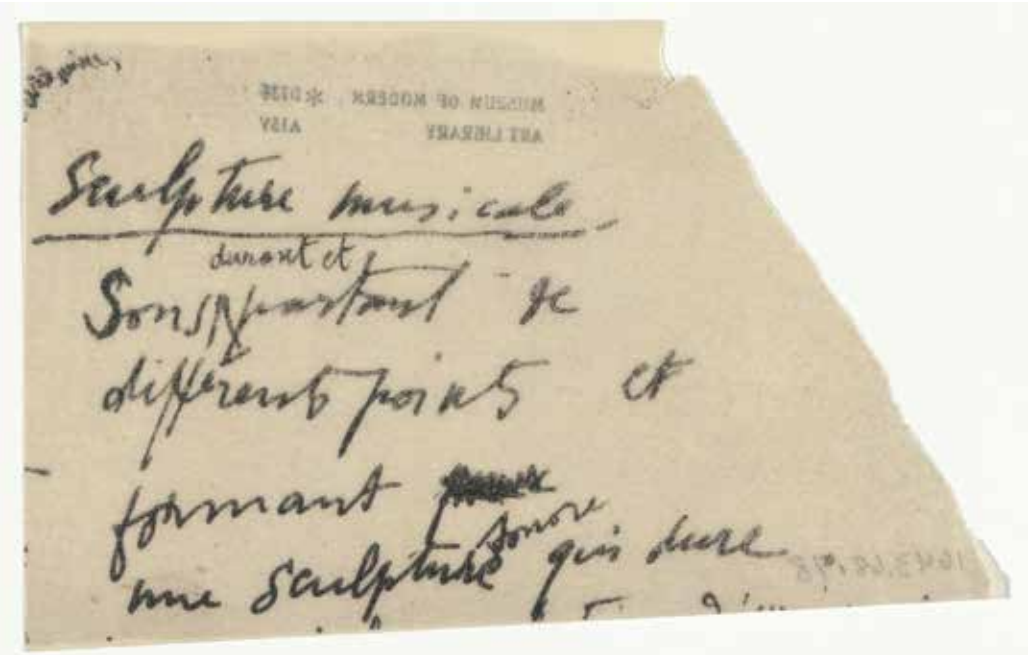 MUSEUM OF MODERN
ART LIBRARY
Sculpture musicale
durant et
Sons partant de
différents points et
formant
sonore
une sculpture qui dure